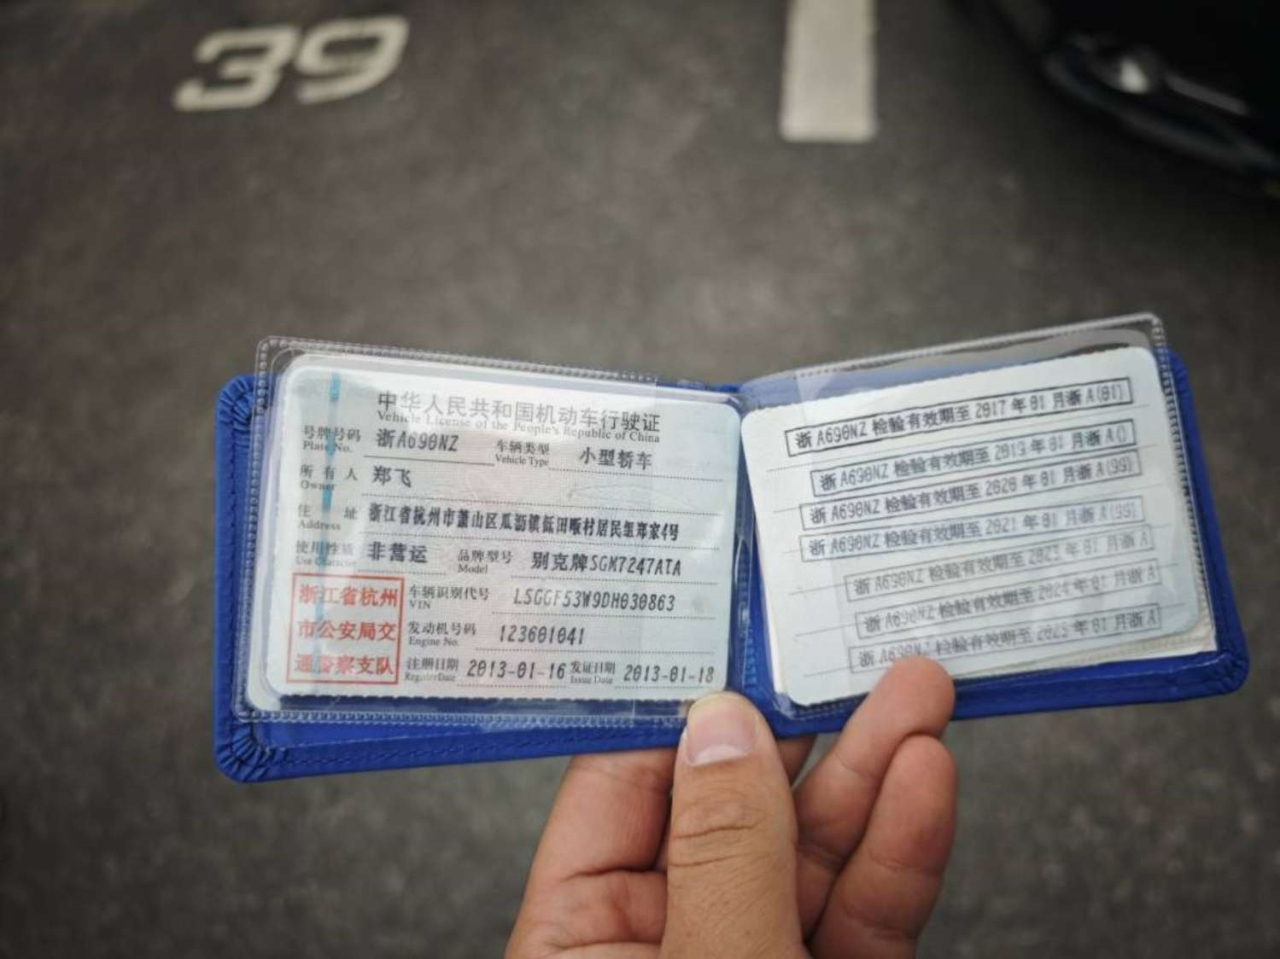 39
中华人民共和国机动车行驶证
Vehicle License of the People's Republic of China
号牌号码 浙A690NZ 车辆类型 小型轿车
Plate No. Vehicle Type
所有人 郑飞
Owner
住址 浙江省杭州市萧山区瓜沥镇低田畈村居民组郑家4号
Address
使用性质 非营运 品牌型号 别克牌SGM7247ATA
Use Character Model
浙江省杭州 车辆识别代号 LSGGF53W9DH030863
VIN
市公安局交 发动机号码 123601041
Engine No.
通警察支队 注册日期 2013-01-16 发证日期 2013-01-18
Register Date Issue Date
浙A690NZ 检验有效期至 2017 年 01 月浙A(01)
浙A690NZ 检验有效期至 2019 年 01 月浙A()
浙A690NZ 检验有效期至 2020 年 01 月浙A(99)
浙A690NZ 检验有效期至 2021 年 01 月浙A(99)
浙A690NZ 检验有效期至 2023 年 01 月浙A
浙A690NZ 检验有效期至 2024 年 01 月浙A
浙A690NZ 检验有效期至 2025 年 01 月浙A